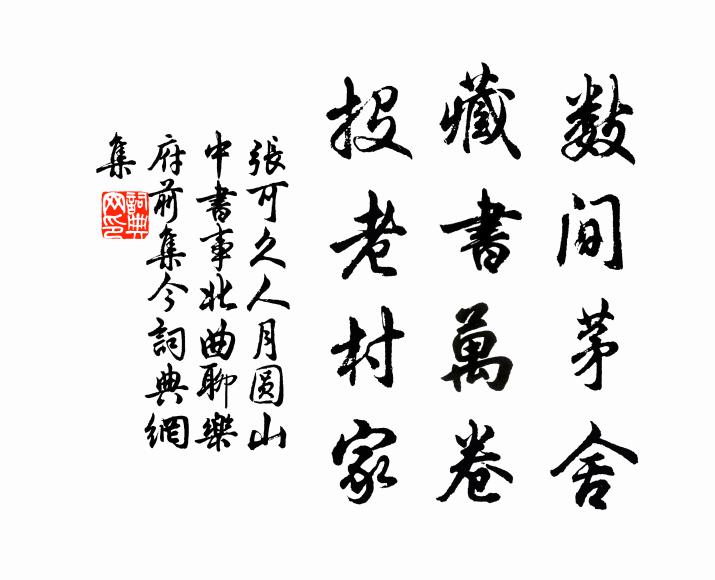 数间茅舍
藏書萬卷
投老村家
張可久人月圆山
中書事北曲聊樂
府前集今詞典網
集
詞典網印